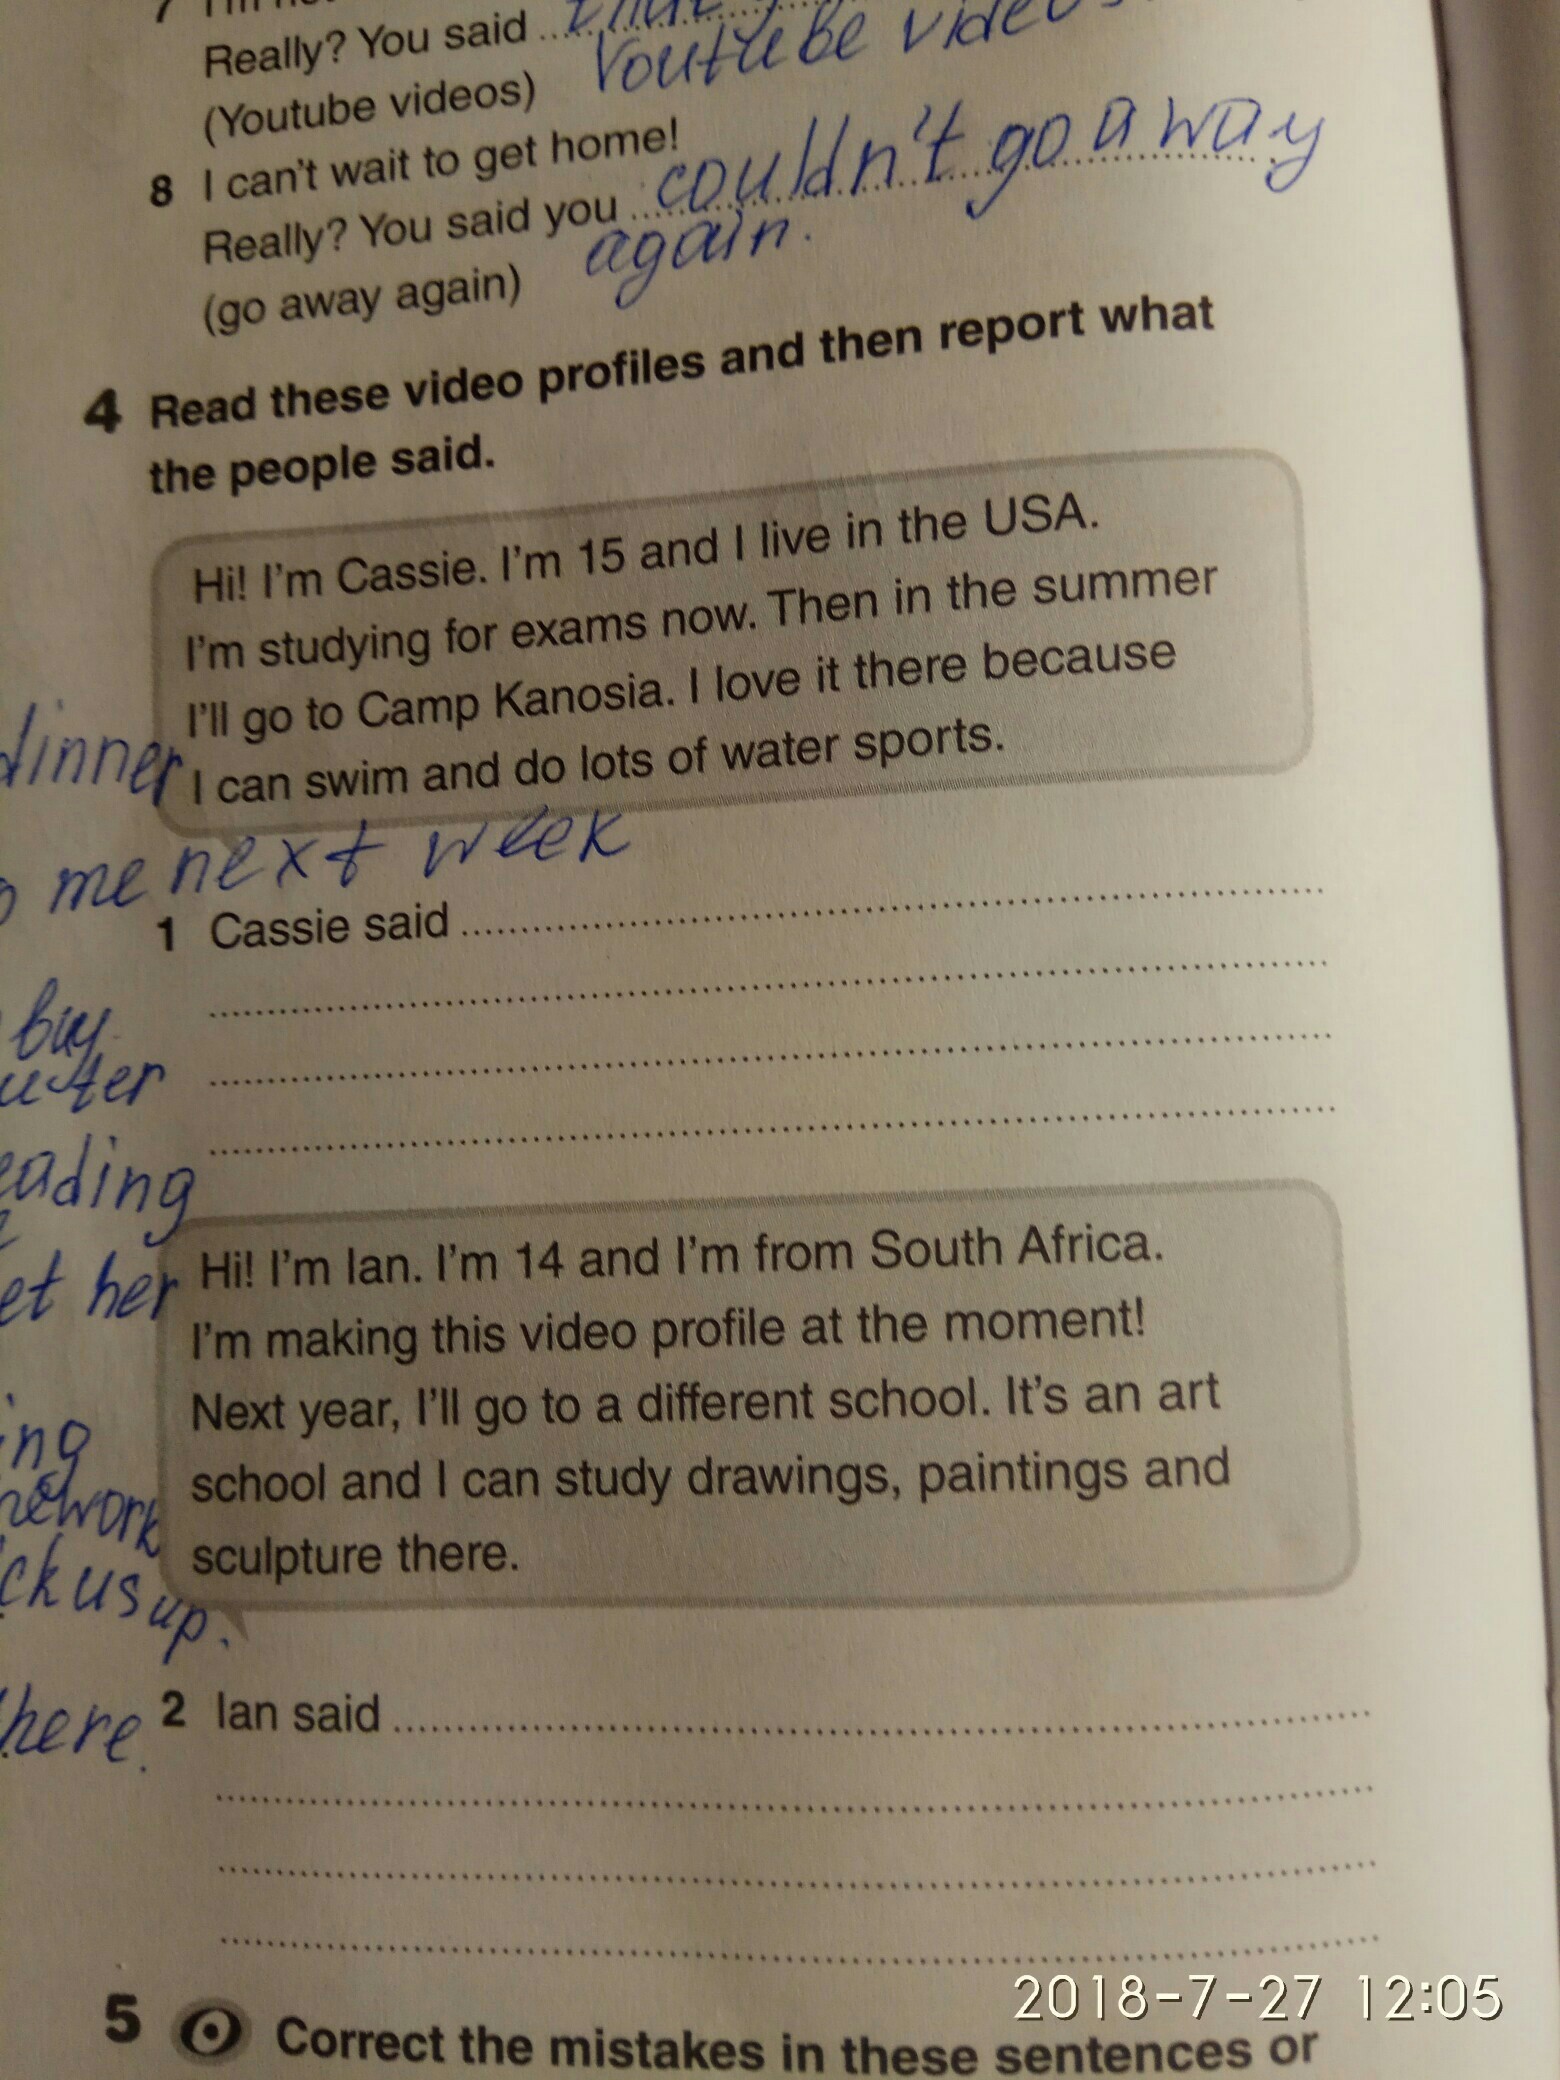 7
Really? You said ........ that
(Youtube videos) Youtube videos
8 I can't wait to get home!
Really? You said you ........ couldn't go away
(go away again) again.
4 Read these video profiles and then report what
the people said.
Hi! I'm Cassie. I'm 15 and I live in the USA.
I'm studying for exams now. Then in the summer
I'll go to Camp Kanosia. I love it there because
dinner I can swim and do lots of water sports.
me next week
1 Cassie said
buy
uter
eading
Hi! I'm Ian. I'm 14 and I'm from South Africa.
et her
I'm making this video profile at the moment!
Next year, I'll go to a different school. It's an art
ing
school and I can study drawings, paintings and
ework
sculpture there.
ck us up.
2 Ian said
here.
2018-7-27 12:05
5 Correct the mistakes in these sentences or